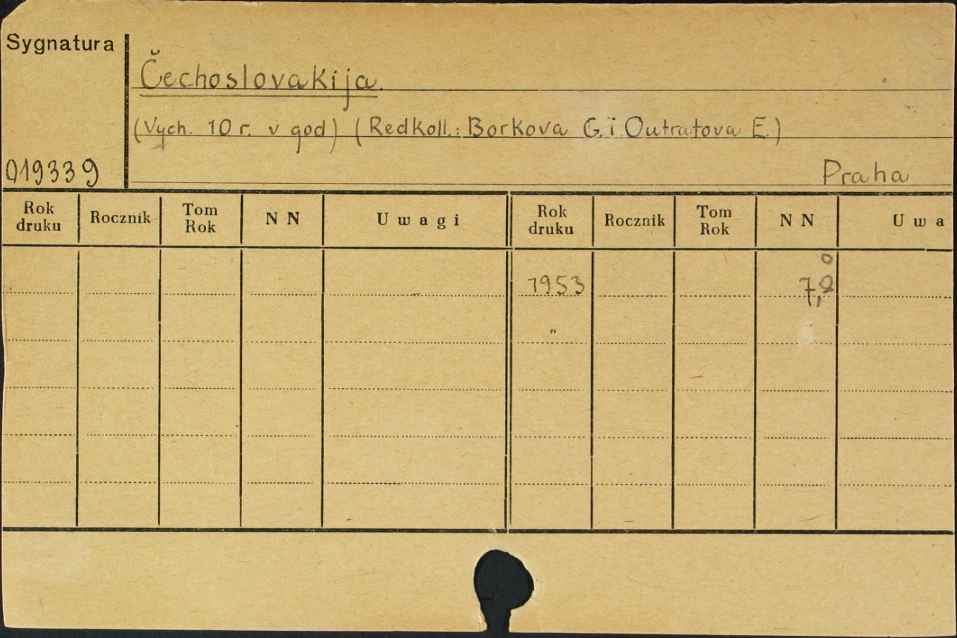 Sygnatura
Čechoslovakija.
(Vych. 10 r. v god) (Redkoll.: Borkova G. i Outratova E.)
019339
Praha
Rok druku Rocznik Tom Rok N N Uwagi Rok druku Rocznik Tom Rok N N Uwa
1953 7,8
"